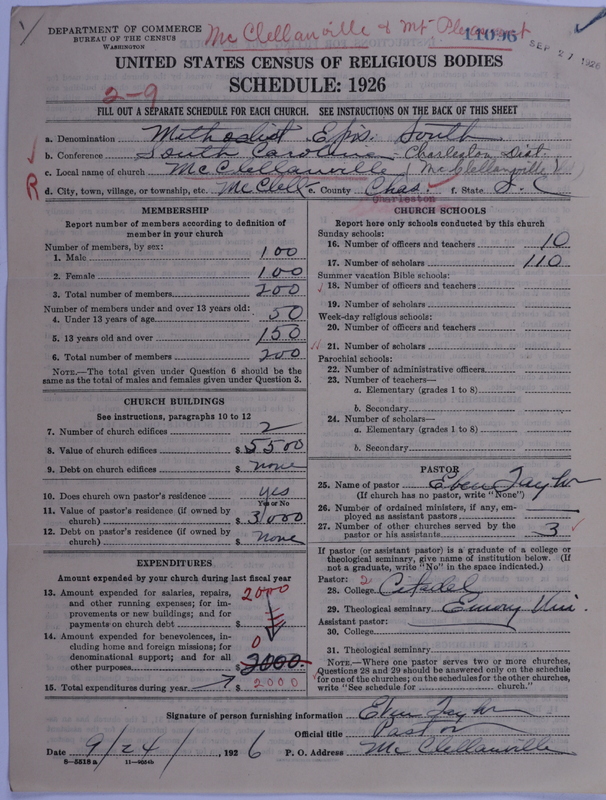 DEPARTMENT OF COMMERCE
BUREAU OF THE CENSUS
WASHINGTON
McClellanville & Mt Pleasant
11096
SEP 27 1926
UNITED STATES CENSUS OF RELIGIOUS BODIES
SCHEDULE: 1926
2-9
FILL OUT A SEPARATE SCHEDULE FOR EACH CHURCH. SEE INSTRUCTIONS ON THE BACK OF THIS SHEET
a. Denomination Methodist Epis. South
b. Conference South Carolina Charleston Dist
c. Local name of church McClellanville (McClellanville
R
d. City, town, village, or township, etc. McClell e. County Chas. f. State S. C
Charleston
MEMBERSHIP
Report number of members according to definition of member in your church
Number of members, by sex:
1. Male 100
2. Female 100
3. Total number of members 200
Number of members under and over 13 years old:
4. Under 13 years of age 50
5. 13 years old and over 150
6. Total number of members 200
NOTE.—The total given under Question 6 should be the
same as the total of males and females given under Question 3.
CHURCH BUILDINGS
See instructions, paragraphs 10 to 12
7. Number of church edifices 2
8. Value of church edifices $ 5500
9. Debt on church edifices $ none
10. Does church own pastor's residence yes
Yes or No
11. Value of pastor's residence (if owned by
church) $ 3000
12. Debt on pastor's residence (if owned by
church) $ none
EXPENDITURES
Amount expended by your church during last fiscal year
13. Amount expended for salaries, repairs, 2000
and other running expenses; for im-
provements or new buildings; and for
payments on church debt $
14. Amount expended for benevolences, in- 0
cluding home and foreign missions; for
denominational support; and for all
other purposes $ 2000
15. Total expenditures during year $ 2000
CHURCH SCHOOLS
Report here only schools conducted by this church
Sunday schools:
16. Number of officers and teachers 10
17. Number of scholars 110
Summer vacation Bible schools:
18. Number of officers and teachers
19. Number of scholars
Week-day religious schools:
20. Number of officers and teachers
21. Number of scholars
Parochial schools:
22. Number of administrative officers
23. Number of teachers—
a. Elementary (grades 1 to 8)
b. Secondary
24. Number of scholars—
a. Elementary (grades 1 to 8)
b. Secondary
PASTOR
25. Name of pastor Eben Taylor
(If church has no pastor, write "None")
26. Number of ordained ministers, if any, em-
ployed as assistant pastors
27. Number of other churches served by the
pastor or his assistants 3
If pastor (or assistant pastor) is a graduate of a college or
theological seminary, give name of institution below. (If
not a graduate, write "No" in the space indicated.)
Pastor: 2
28. College Citadel
29. Theological seminary Emory Uni.
Assistant pastor:
30. College
31. Theological seminary
NOTE.—Where one pastor serves two or more churches,
Questions 28 and 29 should be answered only on the schedule
for one of the churches; on the schedules for the other churches,
write "See schedule for church."
Signature of person furnishing information Eben Taylor
Official title Pastor
Date 9/24/, 1926 P. O. Address McClellanville
8-5518 a 11-9054b